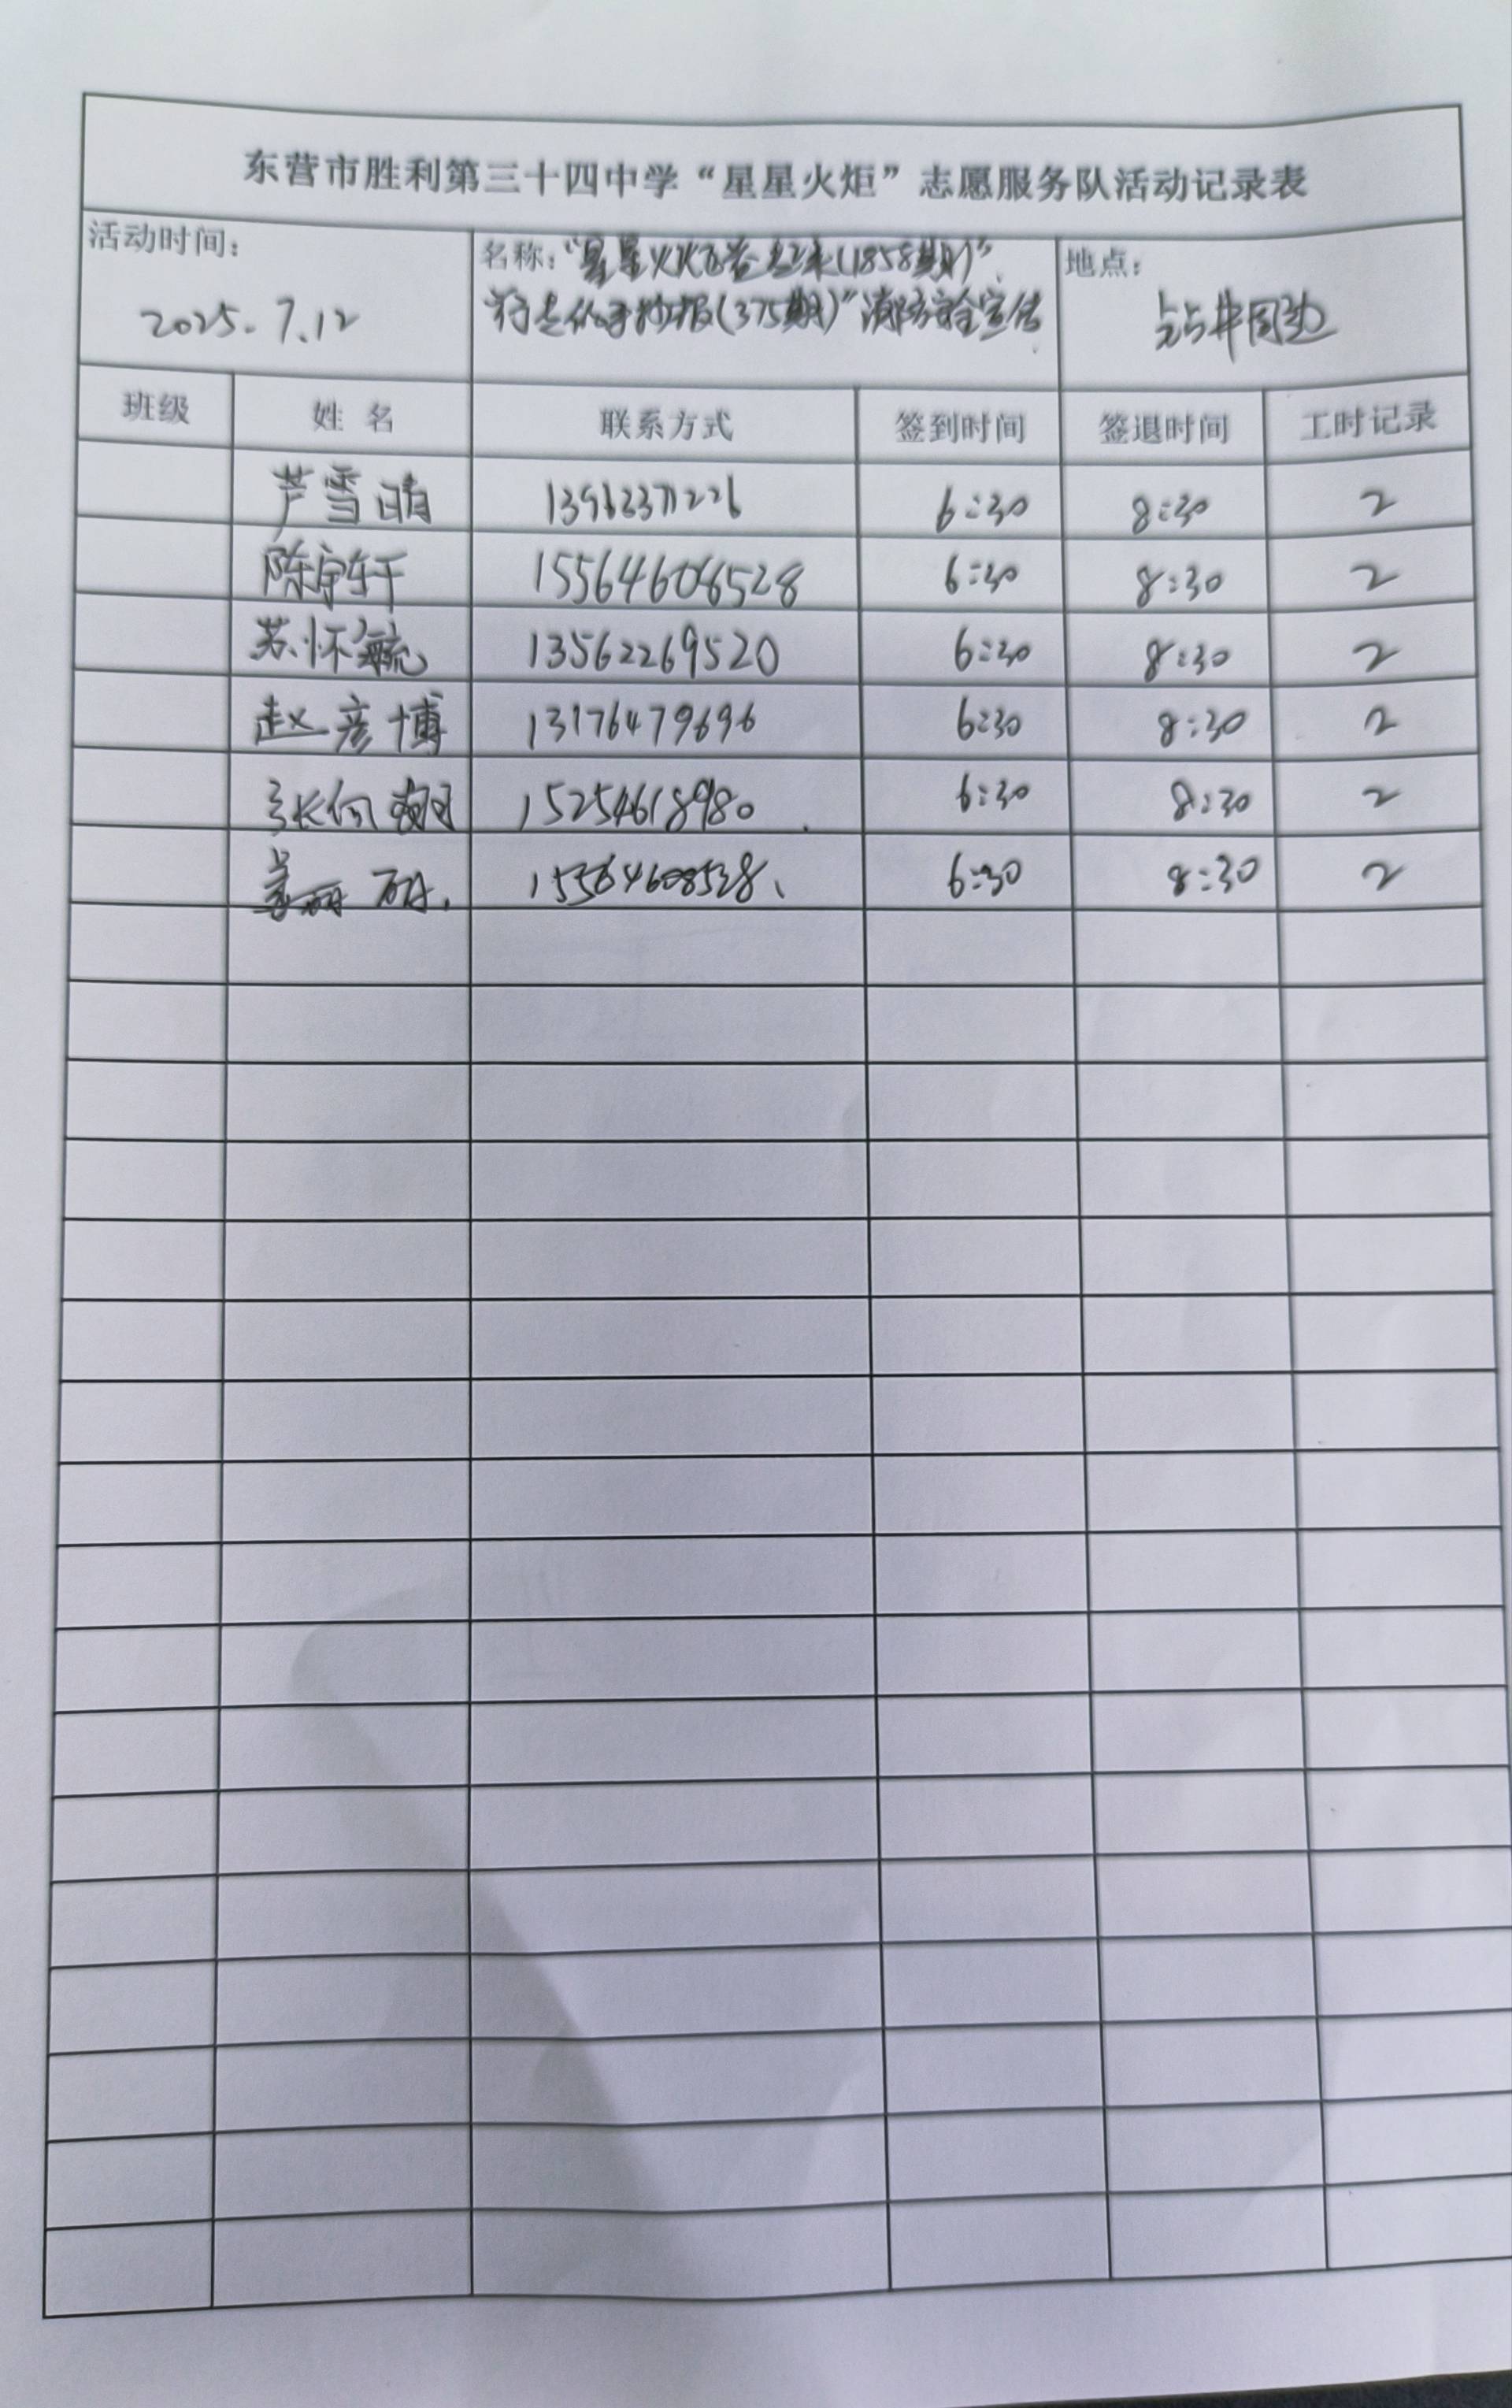 东营市胜利第三十四中学“星星火炬”志愿服务队活动记录表
活动时间： 名称：“星星火火 (1858期)” 地点：
2025.7.12 手抄报(375期)”消防安全宣传 钻井周边
班级 姓名 联系方式 签到时间 签退时间 工时记录
芦雪晴 6:30 8:30 2
陈宇轩 15564606528 6:30 8:30 2
苏怀毓 13562269520 6:30 8:30 2
赵彦博 13176479696 6:30 8:30 2
张 15254618980 6:30 8:30 2
姜 15564608528 6:30 8:30 2